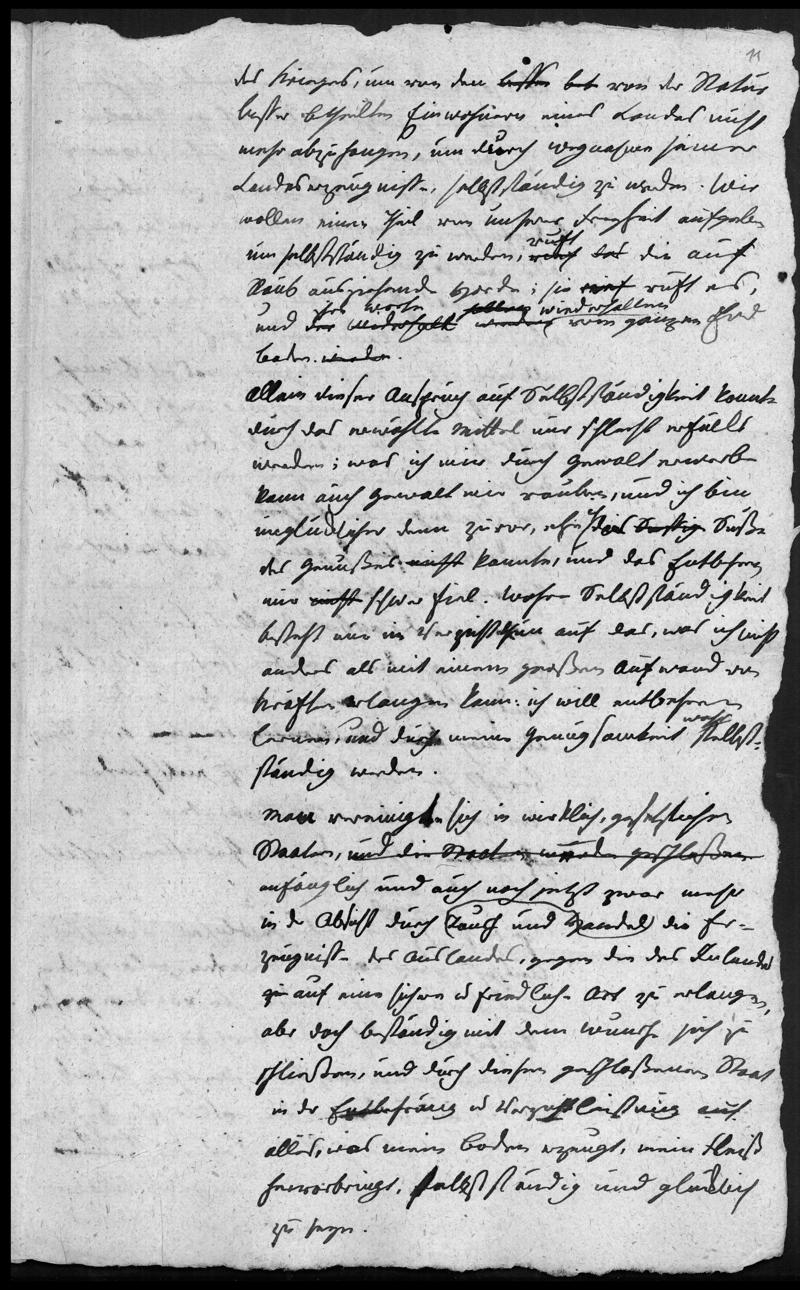 11
des Krieges, um von den von der Natur
besser betheilten Einwohnern eines Landes nicht
mehr abzuhangen, um durch wegnahme seiner
Landeserzeugnisse, selbstständig zu werden. Wir
wollen einen Theil von unserer Freyheit aufgeben
um selbstständig zu werden, ruft die auf
Raub ausziehende Horde; sie ruft es,
und ihre Worte wiederhallen vom ganzen Erd
boden.
Allein dieser Anspruch auf Selbstständigkeit konnte
durch das erwählte Mittel nur schlecht erfüllt
werden; was ich mir durch Gewalt erwerbe
kann auch Gewalt mir rauben, und ich bin
unglücklicher denn zuvor, ehe ich das Süße
des Genußes nicht kannte, und das Entbehren
mir nicht schwer fiel. Wahre Selbstständigkeit
besteht nur im Verzichtthun auf das, was ich nicht
anders als mit einem großen Aufwand von
Kräften erlangen kann: ich will entbehren
lernen, und durch meine Genügsamkeit wahr selbst-
ständig werden.
Man vereinigte sich in wirklich, gesetzlichen
Staaten, und die Staaten wurden geschloßen
anfänglich und auch noch jetzt zwar mehr
in der Absicht durch (Tausch und Handel) die Er-
zeugnisse des Auslandes, gegen die des Inlandes
zu auf eine sichere u friedliche Art zu erlangen,
aber doch beständig mit dem Wunsche sich zu
schließen, und durch diesen geschloßenen Staat
in der Entbehrung u Verzichtleistung auf
alles, was mein Boden erzeugt, mein Fleiß
hervorbringt, selbstständig und glücklich
zu seyn.